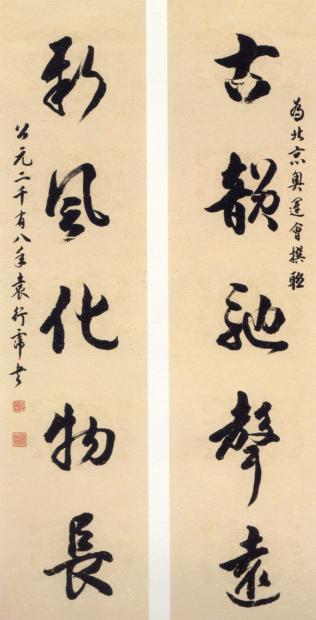 為北京奧運會撰聯
古韻馳聲遠
新風化物長
公元二千有八年袁行霈書